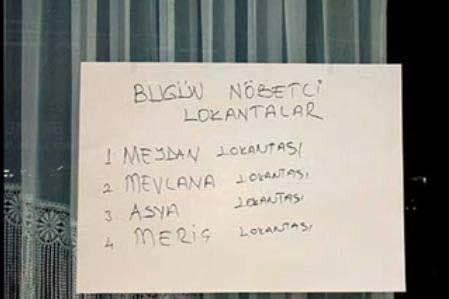 BUGÜN NÖBETCİ
LOKANTALAR
1 MEYDAN LOKANTASI
2 MEVLANA LOKANTASI
3 ASYA LOKANTASI
4 MERİÇ LOKANTASI